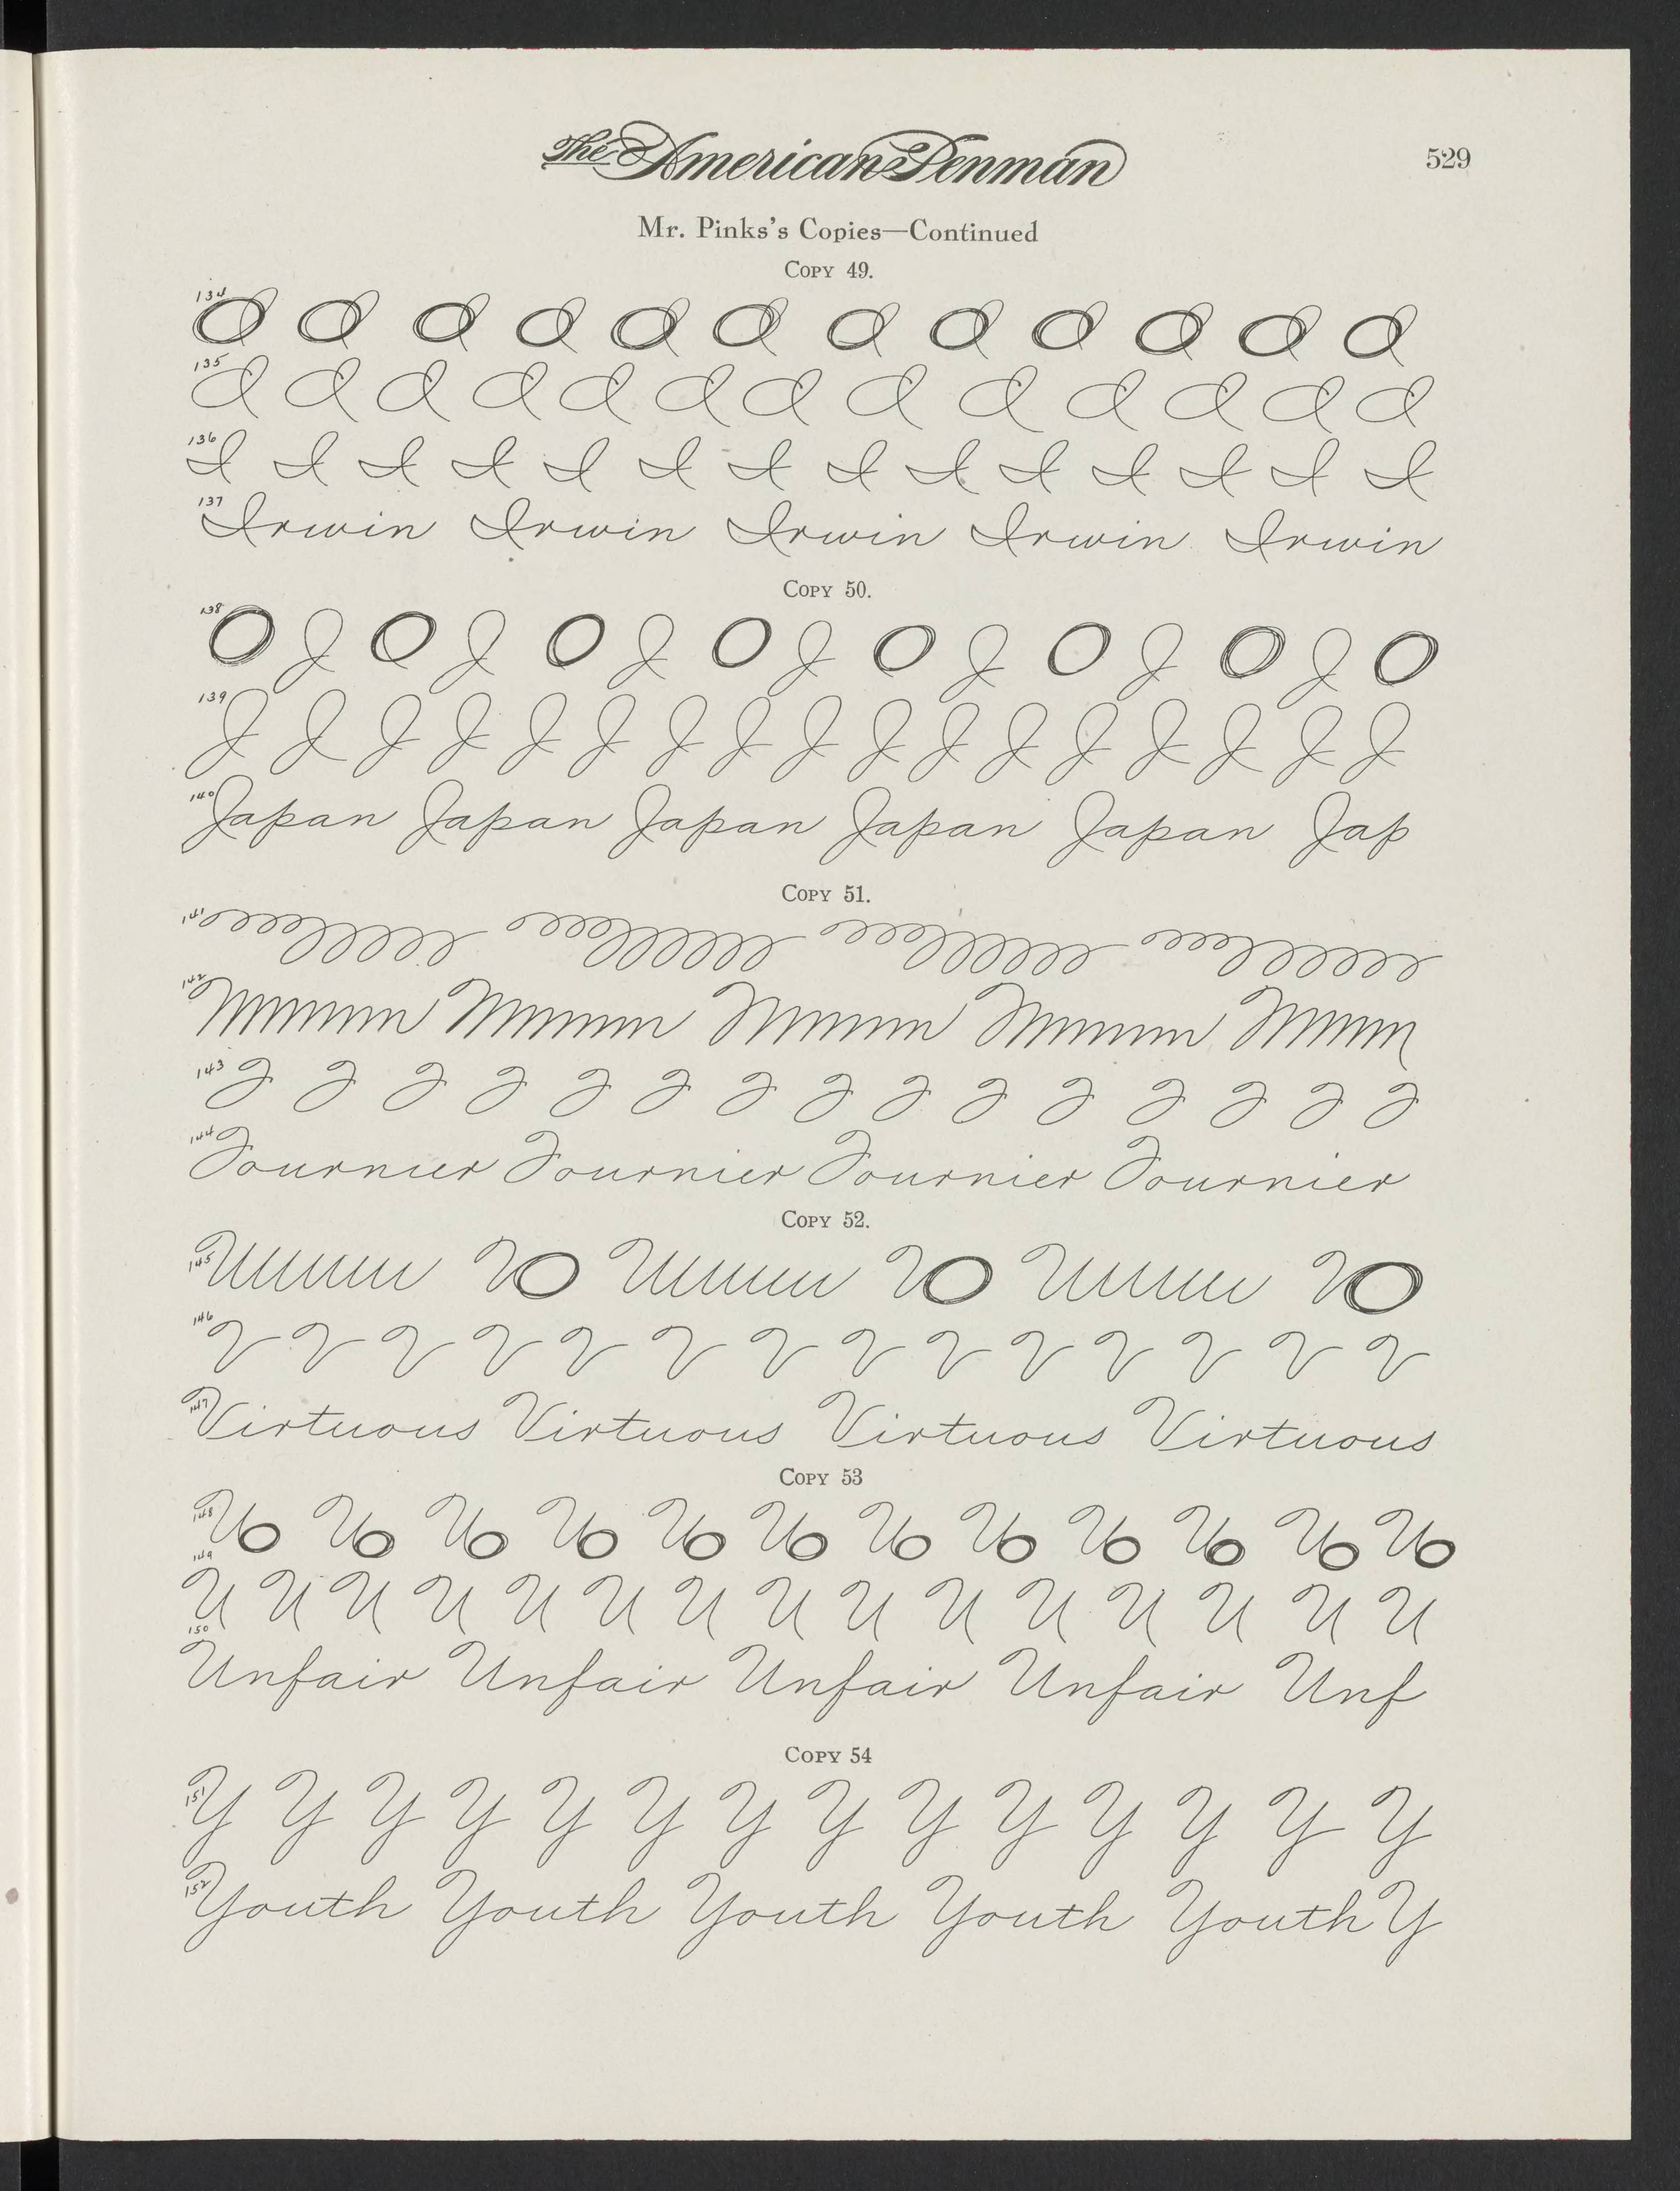 The American Penman
529
Mr. Pinks's Copies—Continued
COPY 49.
134
135
136 I I I I I I I I I I I I I I
137 Irwin Irwin Irwin Irwin Irwin
COPY 50.
138 O J O J O J O J O J O J O J O
139 J J J J J J J J J J J J J J J J J
140 Japan Japan Japan Japan Japan Jap
COPY 51.
141
142
143
144 Fournier Fournier Fournier Fournier
COPY 52.
145
146 V V V V V V V V V V V V V V
147 Virtuous Virtuous Virtuous Virtuous
COPY 53
148
149 U U U U U U U U U U U U U U U
150 Unfair Unfair Unfair Unfair Unf
COPY 54
151 Y Y Y Y Y Y Y Y Y Y Y Y Y Y
152 Youth Youth Youth Youth Youth Y